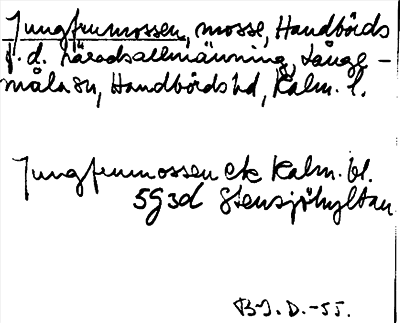 Jungfrumossen, mosse, Handbörds
f.d. häradsallmänning, Långe-
måla sn, Handbörds hd, Kalm. l.
Jungfrumossen ek Kalm. bl.
5G3d Stensjöhyltan
B.J. D. -55.